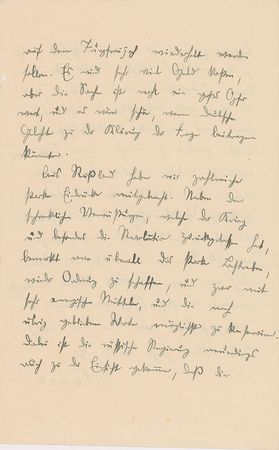 auf dem Jungfraujoch wiederholt werden
sollen. Es wird sehr viel Geld kosten,
aber die Sache ist wohl ein großes Opfer
wert, und es wäre schön, wenn deutsche
Gelehrte zu der Klärung der Frage beitragen
könnten.
Aus Rußland haben wir zahlreiche
starke Eindrücke mitgebracht. Neben den
schrecklichen Verwüstungen, welche der Krieg
und besonders die Revolution zurückgelassen hat,
bemerkt man überall das starke Bestreben,
wieder Ordnung zu schaffen, und zwar mit
sehr energischen Mitteln, und die noch
übrig gebliebenen Werte möglichst zu konservieren.
Dabei ist die russische Regierung neuerdings
auch zu der Einsicht gekommen, daß die